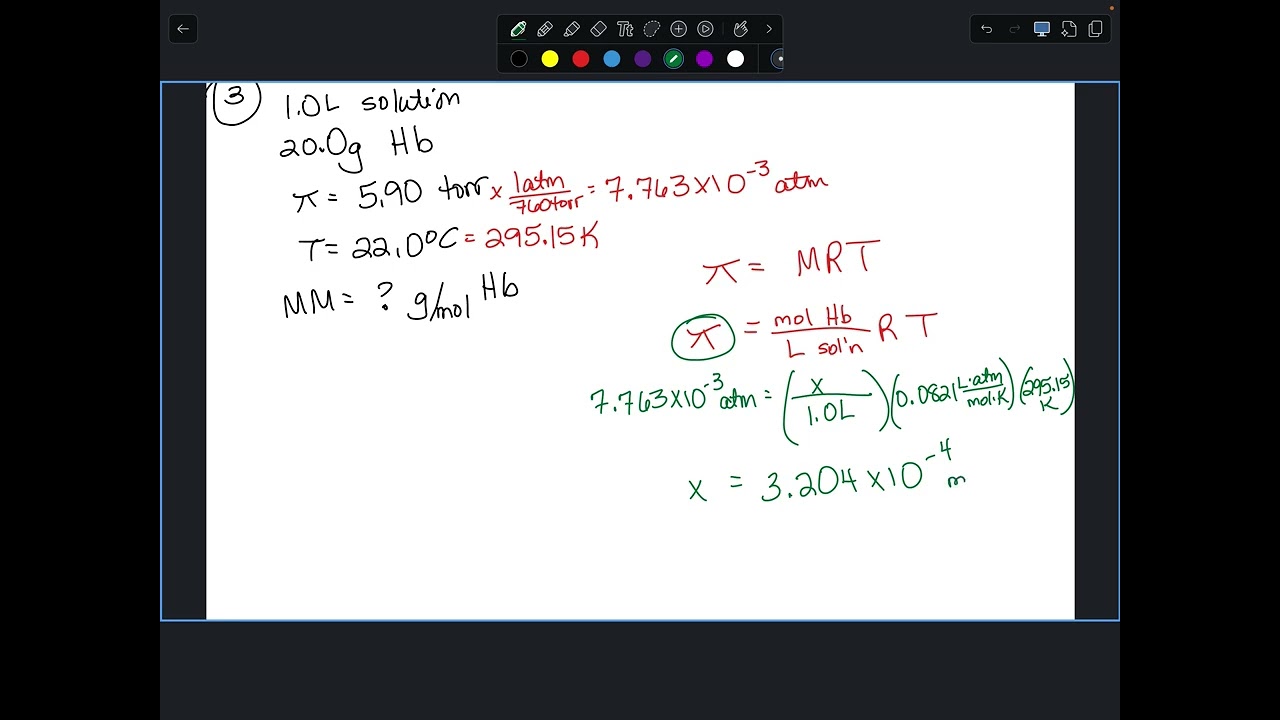 3 1.0L solution
20.0g Hb
π = 5.90 torr × 1atm/760torr = 7.763 × 10⁻³ atm
T = 22.0°C = 295.15K
MM = ? g/mol Hb
π = MRT
π = mol Hb/L sol'n RT
7.763×10⁻³ atm = (x/1.0L)(0.0821 L·atm/mol·K)(295.15 K)
x = 3.204 × 10⁻⁴ m
Tt